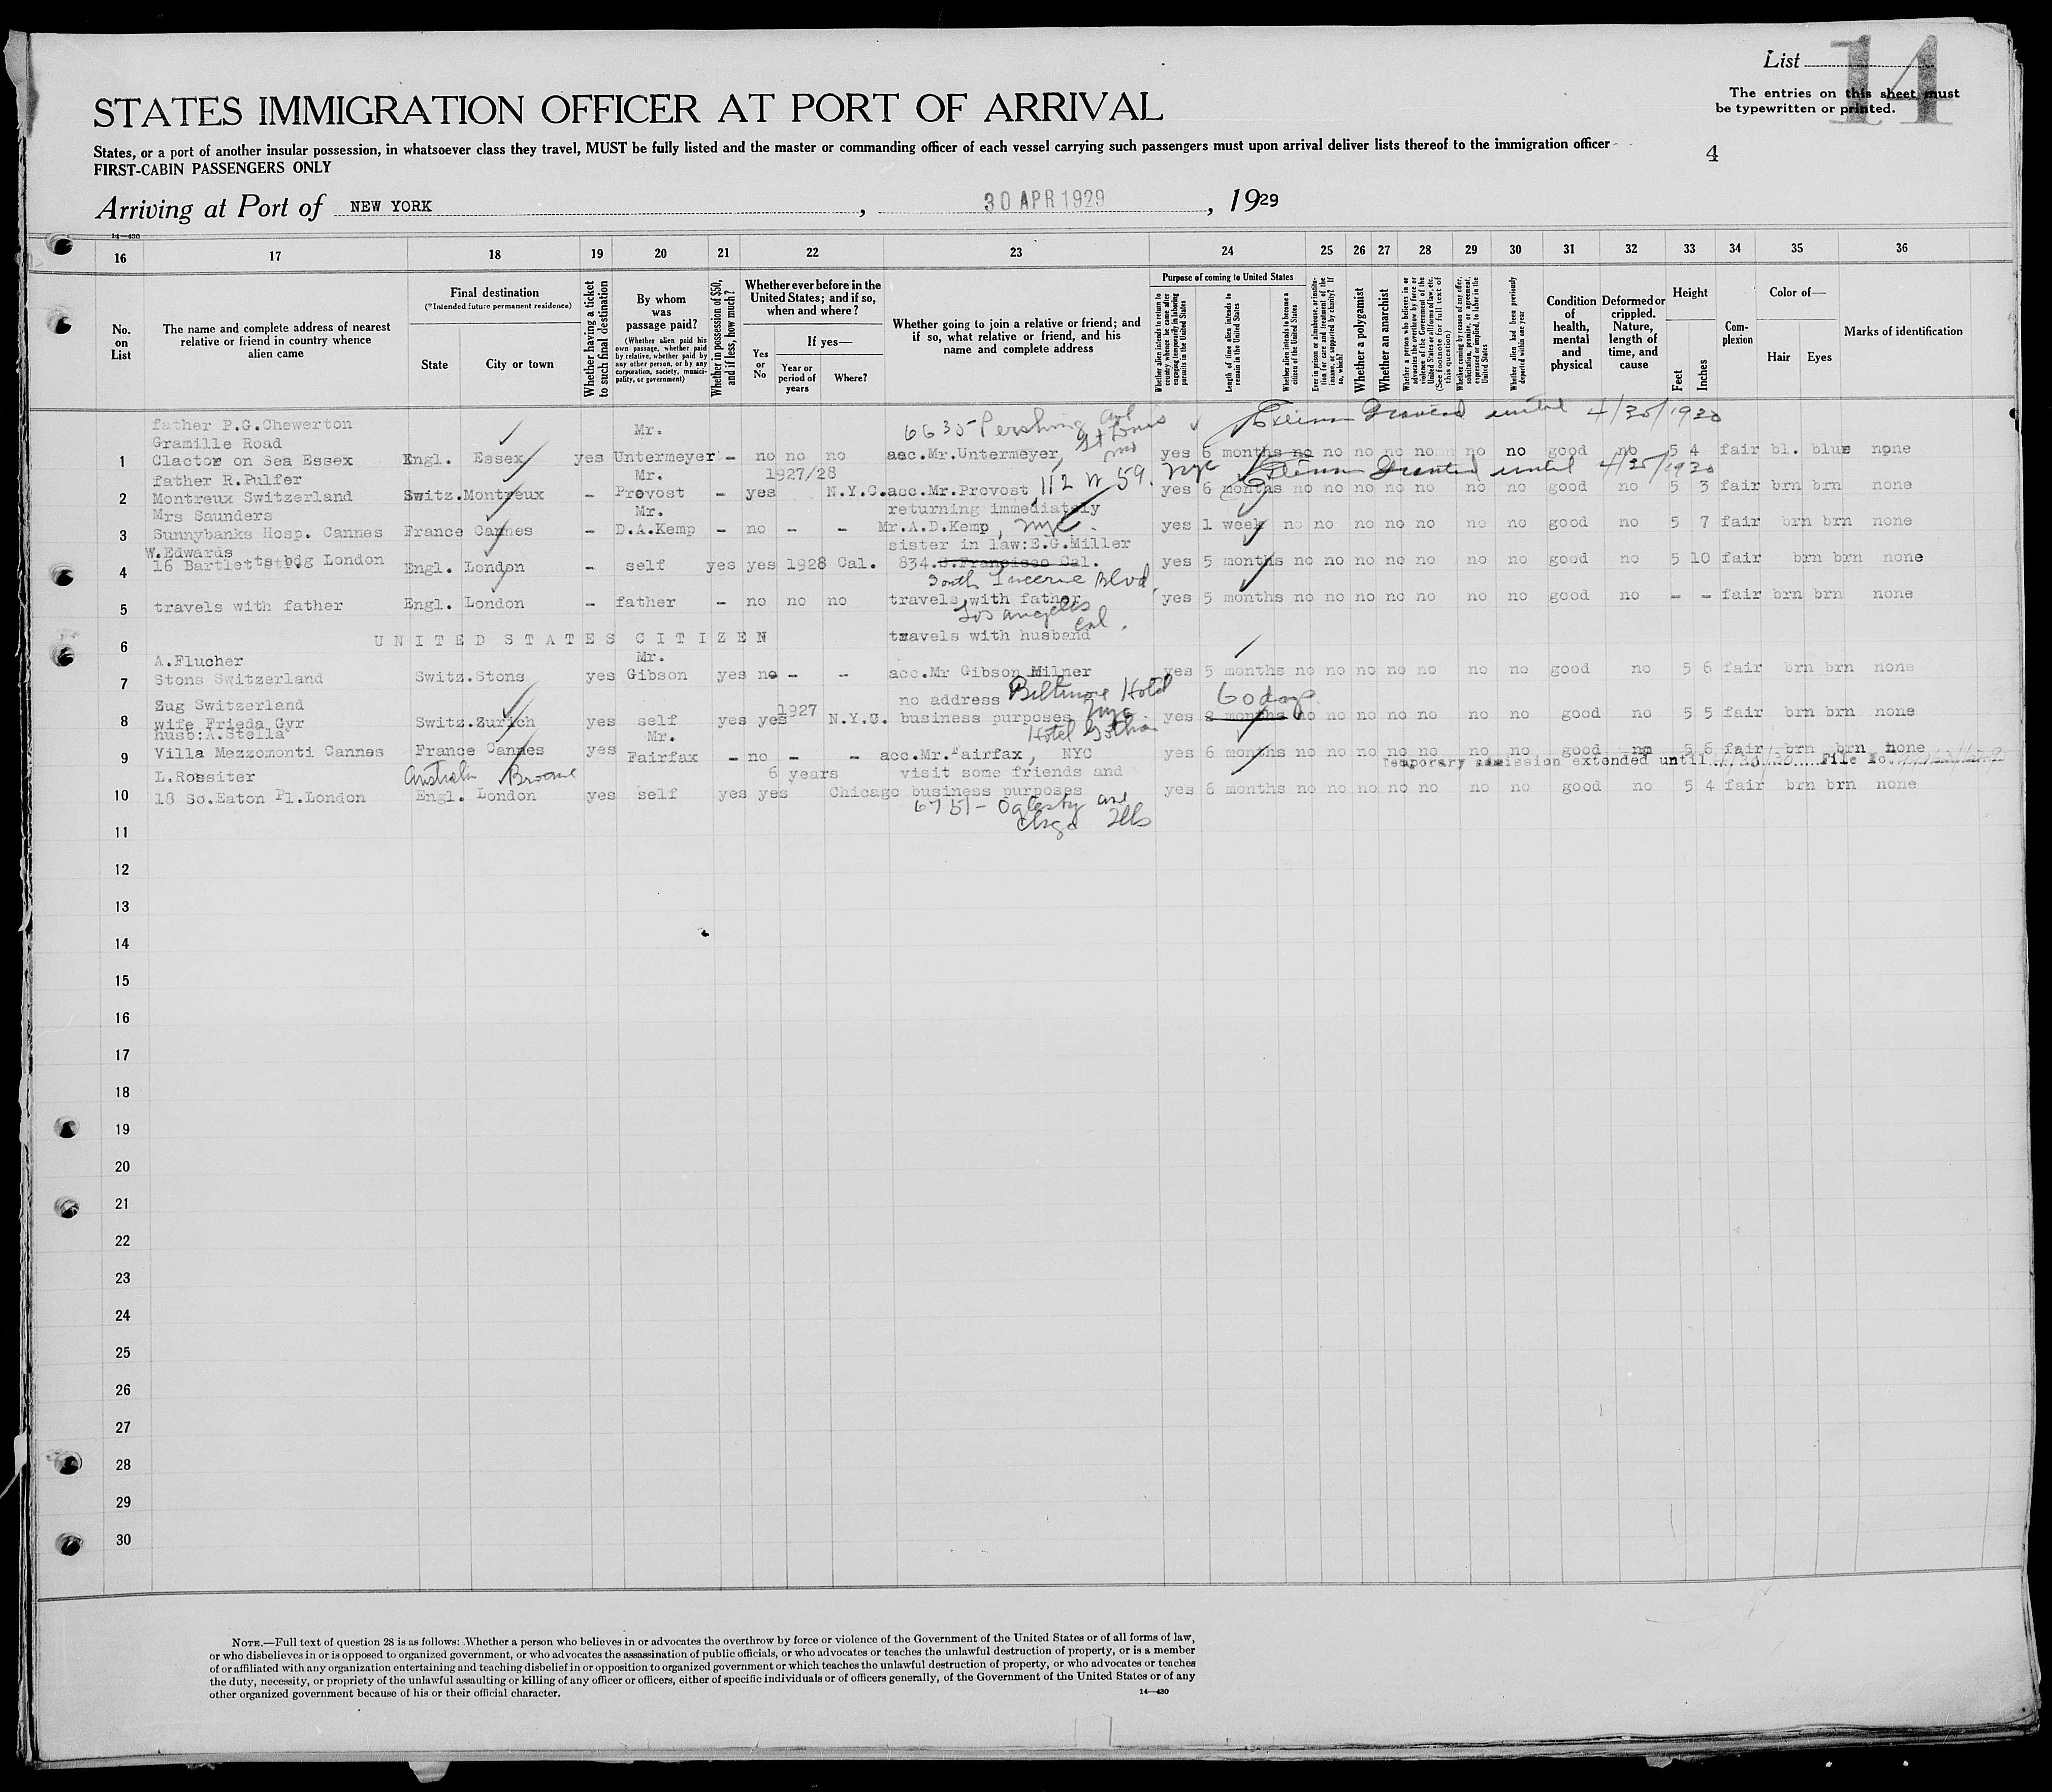 List
14
The entries on this sheet must
be typewritten or printed.
STATES IMMIGRATION OFFICER AT PORT OF ARRIVAL
States, or a port of another insular possession, in whatsoever class they travel, MUST be fully listed and the master or commanding officer of each vessel carrying such passengers must upon arrival deliver lists thereof to the immigration officer
FIRST-CABIN PASSENGERS ONLY
4
Arriving at Port of NEW YORK, 30 APR 1929, 1929
14—430
16 17 18 19 20 21 22 23 24 25 26 27 28 29 30 31 32 33 34 35 36
No. on List
The name and complete address of nearest relative or friend in country whence alien came
Final destination
(*Intended future permanent residence)
State
City or town
Whether having a ticket to such final destination
By whom was passage paid?
(Whether alien paid his own passage, whether paid by relative, whether paid by any other person, or by any corporation, society, municipality, or government)
Whether in possession of $50, and if less, how much?
Whether ever before in the United States; and if so, when and where?
Yes or No
If yes—
Year or period of years
Where?
Whether going to join a relative or friend; and if so, what relative or friend, and his name and complete address
Purpose of coming to United States
Whether alien intends to return to country whence he came after engaging temporarily in laboring pursuits in the United States
Length of time alien intends to remain in the United States
Whether alien intends to become a citizen of the United States
Ever in prison or almshouse, or institution for care and treatment of the insane, or supported by charity? If so, which?
Whether a polygamist
Whether an anarchist
Whether a person who believes in or advocates the overthrow by force or violence of the Government of the United States or all forms of law, etc. (See footnote for full text of this question)
Whether coming by reason of any offer, solicitation, promise, or agreement, expressed or implied, to labor in the United States
Whether alien had been previously deported within one year
Condition of health, mental and physical
Deformed or crippled. Nature, length of time, and cause
Height
Feet
Inches
Complexion
Color of—
Hair
Eyes
Marks of identification
father P.G.Chewerton Mr. 6635 Pershing Ave until 4/30/1930
Gramille Road St Louis
1 Clactor on Sea Essex Engl. Essex yes Untermeyer - no no no acc.Mr.Untermeyer, Mo yes 6 months no no no no no no no good no 5 4 fair bl. blue none
father R.Pulfer Mr. 1927/28 nyc Granted until 4/30/1930
2 Montreux Switzerland Switz. Montreux - Provost - yes N.Y.C. acc.Mr.Provost 112 W 59. yes 6 months no no no no no no no good no 5 3 fair brn brn none
Mrs Saunders Mr. returning immediately
3 Sunnybanks Hosp. Cannes France Cannes - D.A.Kemp - no - - Mr.A.D.Kemp, nyc. yes 1 week no no no no no no no good no 5 7 fair brn brn none
W.Edwards sister in law:E.G.Miller
4 16 Bartletts bdg London Engl. London - self yes yes 1928 Cal. 834. S.Francisco Cal. yes 5 months no no no no no no no good no 5 10 fair brn brn none
South Lucerne Blvd.
5 travels with father Engl. London - father - no no no travels with father yes 5 months no no no no no no no good no - - fair brn brn none
Los Angeles
Cal.
6 UNITED STATES CITIZEN travels with husband
A.Flucher Mr.
7 Stons Switzerland Switz. Stons yes Gibson yes no - - acc.Mr Gibson Milner yes 5 months no no no no no no no good no 5 6 fair brn brn none
Zug Switzerland 1927 no address Biltmore Hotel 60 days
8 wife Frieda Gyr Switz. Zurich yes self yes yes N.Y.C. business purposes nyc yes 2 months no no no no no no no good no 5 5 fair brn brn none
husb:A.Stella Mr. Hotel Gotham
9 Villa Mezzomonti Cannes France Cannes yes Fairfax - no - - acc.Mr.Fairfax, NYC yes 6 months no no no no no no no good no 5 6 fair brn brn none
Temporary admission extended until File No.
L.Rossiter Australia Broome 6 years visit some friends and
10 18 So.Eaton Pl.London Engl. London yes self yes yes Chicago business purposes yes 6 months no no no no no no no good no 5 4 fair brn brn none
6751 - Oglesby ave
Chgo Ills
11
12
13
14
15
16
17
18
19
20
21
22
23
24
25
26
27
28
29
30
NOTE.—Full text of question 28 is as follows: Whether a person who believes in or advocates the overthrow by force or violence of the Government of the United States or of all forms of law,
or who disbelieves in or is opposed to organized government, or who advocates the assassination of public officials, or who advocates or teaches the unlawful destruction of property, or is a member
of or affiliated with any organization entertaining and teaching disbelief in or opposition to organized government or which teaches the unlawful destruction of property, or who advocates or teaches
the duty, necessity, or propriety of the unlawful assaulting or killing of any officer or officers, either of specific individuals or of officers generally, of the Government of the United States or of any
other organized government because of his or their official character.
14—430